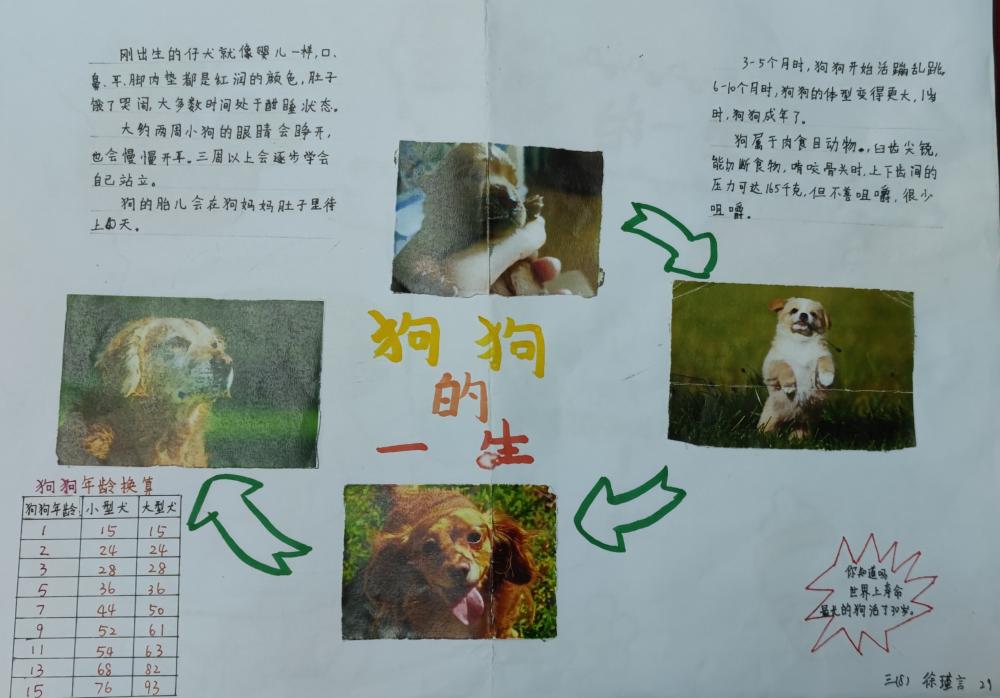 刚出生的仔犬就像婴儿一样,口、
鼻、耳、脚肉垫都是红润的颜色,肚子
饿了哭闹,大多数时间处于酣睡状态。
大约两周小狗的眼睛会睁开,
也会慢慢开耳。三周以上会逐步学会
自己站立。
狗的胎儿会在狗妈妈肚子里待
上百天。
3-5个月时,狗狗开始活蹦乱跳。
6-10个月时,狗狗的体型变得更大,1岁
时,狗狗成年了。
狗属于肉食目动物。,臼齿尖锐,
能切断食物,啃咬骨头时,上下齿间的
压力可达165千克,但不善咀嚼,很少
咀嚼。
狗狗
的
一生
狗狗年龄换算
狗狗年龄 小型犬 大型犬
1 15 15
2 24 24
3 28 28
5 36 36
7 44 50
9 52 61
11 54 63
13 68 82
15 76 93
你知道吗
世界上寿命
最大的狗活了30岁。
三(8) 徐瑾言 29